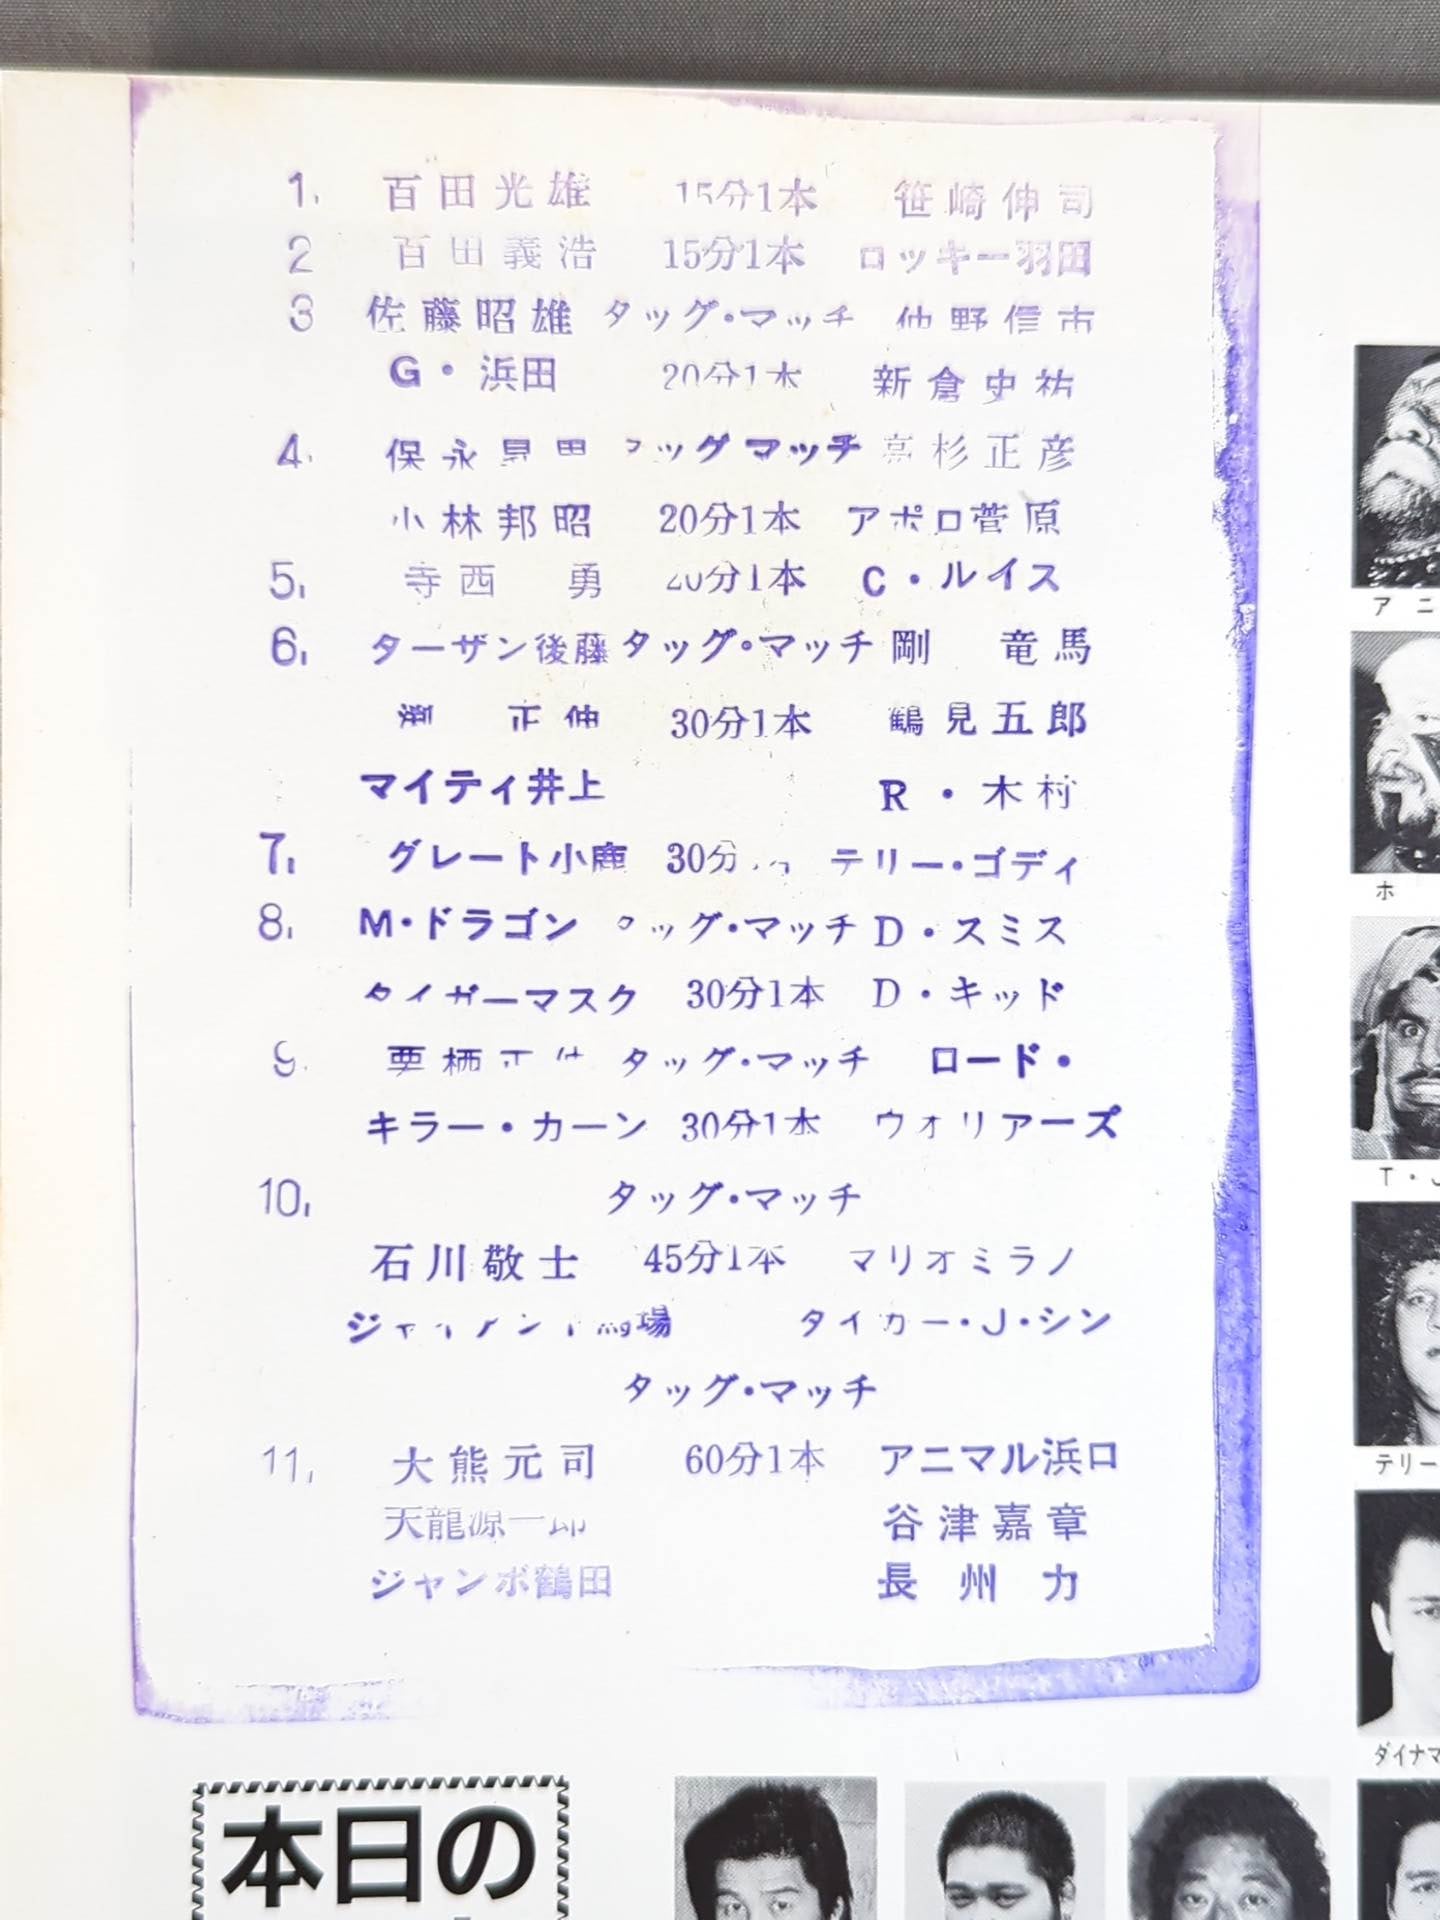 1. 百田光雄 15分1本 笹崎伸司
2 百田義浩 15分1本 ロッキー羽田
3 佐藤昭雄 タッグ・マッチ 仲野信市
G・浜田 20分1本 新倉史祐
4. 保永昇男 タッグマッチ 高杉正彦
小林邦昭 20分1本 アポロ菅原
5. 寺西 勇 20分1本 C・ルイス
6. ターザン後藤 タッグ・マッチ 剛 竜馬
渕 正伸 30分1本 鶴見五郎
マイティ井上 R・木村
7. グレート小鹿 30分 テリー・ゴディ
8. M・ドラゴン タッグ・マッチ D・スミス
タイガーマスク 30分1本 D・キッド
9. 栗栖正伸 タッグ・マッチ ロード・
キラー・カーン 30分1本 ウォリアーズ
10. タッグ・マッチ
石川敬士 45分1本 マリオミラノ
ジャイアント馬場 タイガー・J・シン
タッグ・マッチ
11. 大熊元司 60分1本 アニマル浜口
天龍源一郎 谷津嘉章
ジャンボ鶴田 長州力
アニ
ホ
T・J
テリー
ダイナマ
本日の